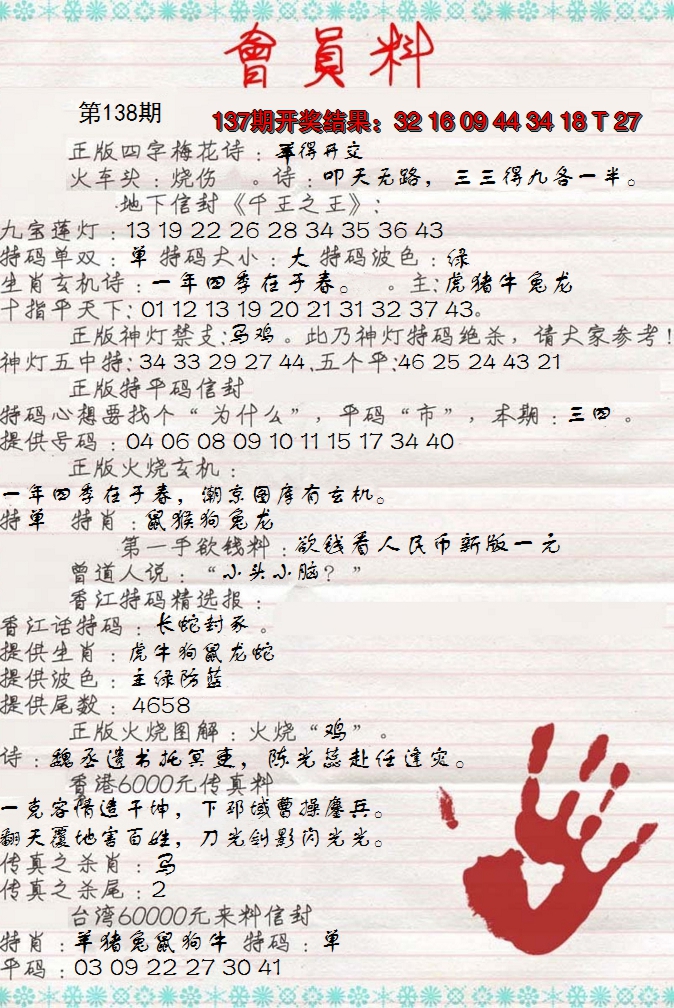 會員料
第138期
137期开奖结果：32 16 09 44 34 18 T 27
正版四字梅花诗：羊得开交
火车头：烧伤 。诗：叩天无路，三三得九各一半。
地下信封《千王之王》：
九宝莲灯：13 19 22 26 28 34 35 36 43
特码单双：单 特码大小：大 特码波色：绿
生肖玄机诗：一年四季在于春。 。主：虎猪牛兔龙
十指平天下：01 12 13 19 20 21 31 32 37 43。
正版神灯禁支：马鸡。此乃神灯特码绝杀，请大家参考！
神灯五中特：34 33 29 27 44.五个平：46 25 24 43 21
正版特平码信封
特码心想要找个“为什么”，平码“市”，本期：三四。
提供号码：04 06 08 09 10 11 15 17 34 40
正版火烧玄机：
一年四季在于春，潮京图库有玄机。
特单 特肖：鼠猴狗兔龙
第一手欲钱料：欲钱看人民币新版一元
曾道人说：“小头小脑？”
香江特码精选报：
香江话特码：长蛇封豕。
提供生肖：虎牛狗鼠龙蛇
提供波色：主绿防蓝
提供尾数：4658
正版火烧图解：火烧“鸡”。
诗：魏丞遗书托冥吏，陈光蕊赴任逢灾。
香港6000元传真料
一克容情造干坤，下邳域曹操鏖兵。
翻天覆地害百姓，刀光剑影闪光光。
传真之杀肖：马
传真之杀尾：2
台湾60000元来料信封
特肖：羊猪兔鼠狗牛 特码：单
平码：03 09 22 27 30 41